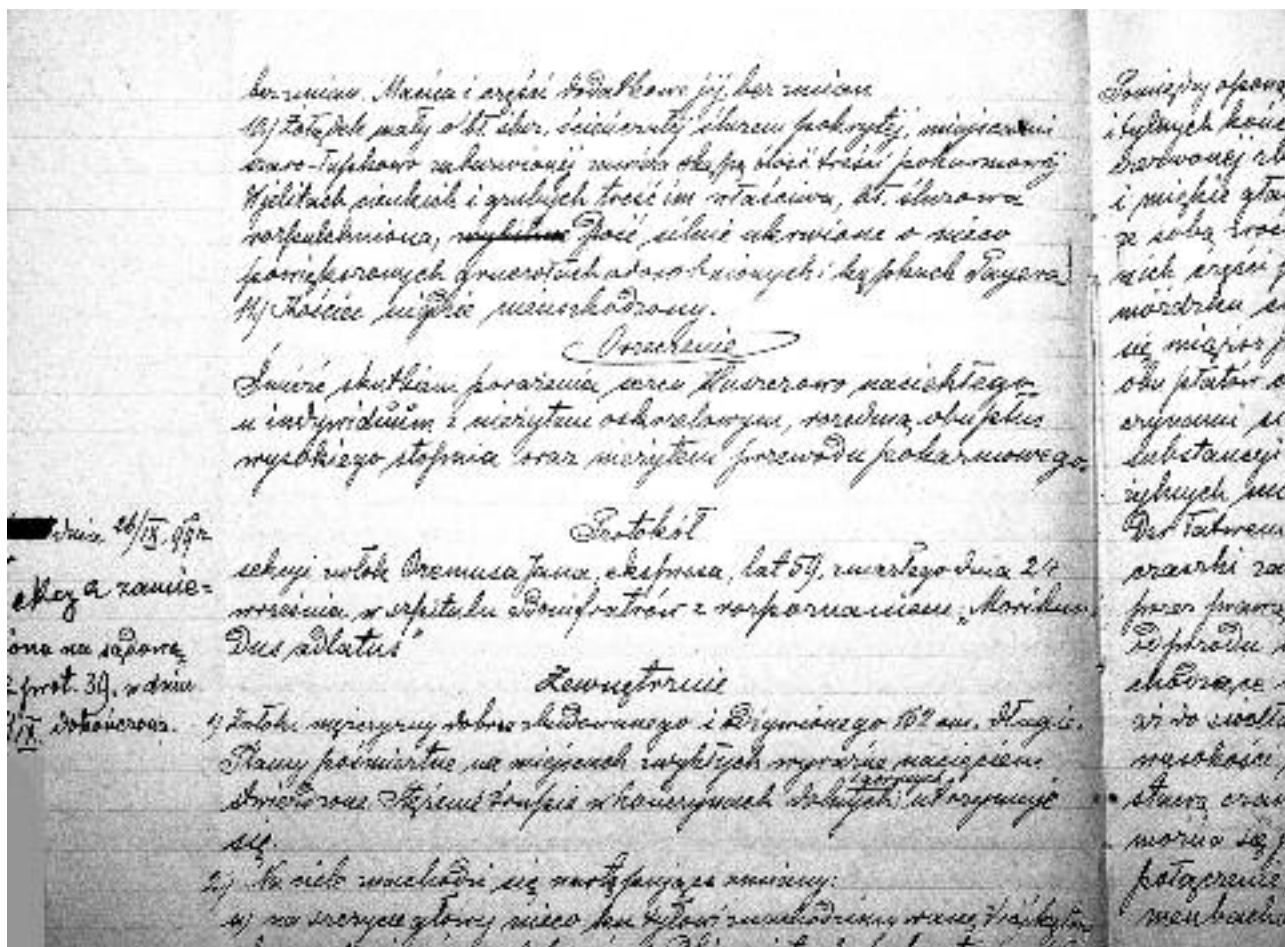 bez zmian. Macica i części dodatkowe jej bez zmian
13) Żołądek mały o bł. śluz. ścieńczałej śluzem pokrytej, miejscami
szaro-łupkowo zabarwionej zawiera skąpą ilość treści pokarmowej
W jelitach cienkich i grubych treść im właściwa, bł. śluzowa
rozpulchniona, dość silnie ukrwiona o nieco
powiększonych gruczołach odosobnionych i kępkach Payera
14) Kościec nigdzie nieuszkodzony.
Orzeczenie
Śmierć skutkiem porażenia serca tłuszczowo naciekłego
u indywiduum z nieżytem oskrzelowym, rozedmą obu płuc
wysokiego stopnia oraz nieżytem przewodu pokarmowego.
Protokół
sekcyi zwłok Oremusa Jana, ekspresa, lat 59, zmarłego dnia 24
września w szpitalu Bonifratrów z rozpoznaniem: "Moribun
dus adlatus"
Zewnętrznie
1) Zwłoki mężczyzny dobrze zbudowanego i odżywionego 162 cm. długie.
Plamy pośmiertne na miejscach zwykłych wyraźne nacięciem
stwierdzone Stężenie trupie w kończynach dolnych i górnych utrzymuje
się.
2) Na ciele znachodzi się następujące zmiany:
a) na szczycie głowy nieco ku tyłowi znachodzimy ranę
dnia 26/IX. 99 r
a zamie=
ona na sądową
prot. 39. w dniu
IX. dokończona.
Pomiędzy opon
i tylnych koń
barwionej
i miękie
ze sobą
nich części
móżdżku
się miąższ
obu płatów
substancyi
żylnych
czaszki
przez
od przodu
chodzące
wysokości
można się
połączenie